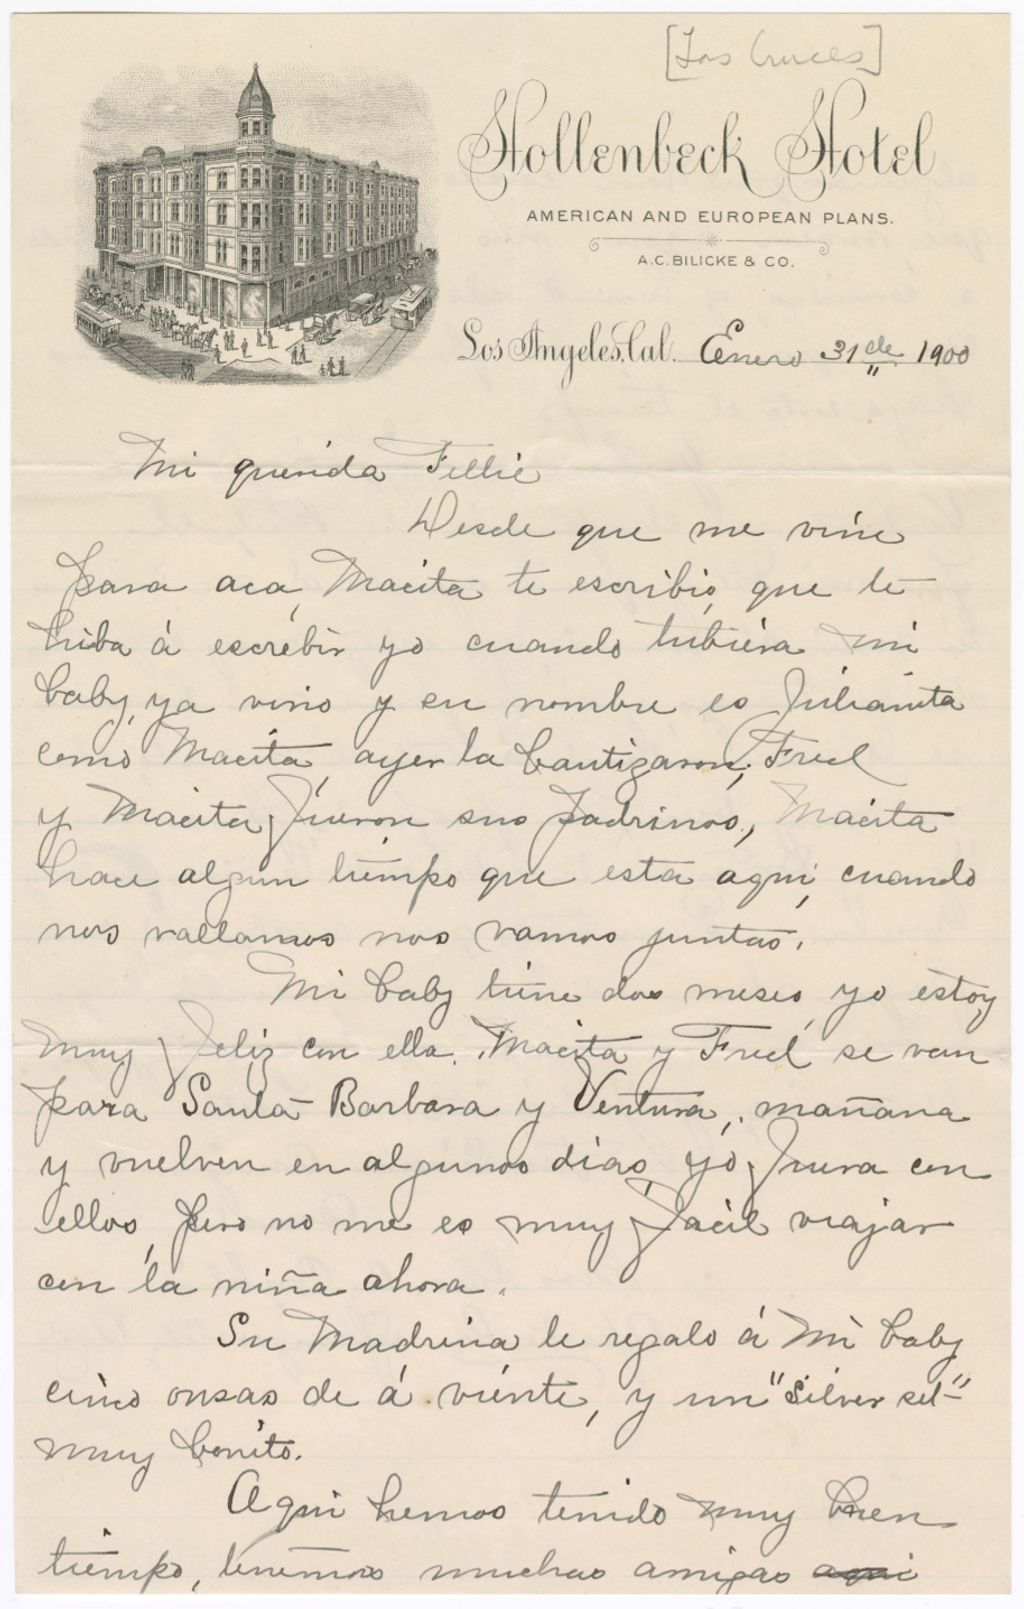 [Las Cruces]
HOLLENBECK
Hollenbeck Hotel
AMERICAN AND EUROPEAN PLANS.
A.C. BILICKE & CO.
Los Angeles, Cal. Enero 31 de 1900
Mi querida Tillie
Desde que me vine
para aca, Macita te escribio, que te
hiba á escrebir yo cuando tubiera mi
baby, ya vino y su nombre es Julianita
como Macita, ayer la bautizaron, Fred
y Macita fueron sus Padrinos, Macita
hace algun tiempo que esta aqui, cuando
nos vallamos nos vamos juntas.
Mi baby tiene dos meses, yo estoy
muy feliz con ella. Macita y Fred se van
para Santa Barbara y Ventura, mañana
y vuelven en algunos dias, yo fuera con
ellos, pero no me es muy facil viajar
con la niña ahora.
Su Madrina le regalo á Mi baby
cinco onsas de á viente, y un "Silver set"
muy bonito.
Aqui hemos tenido muy buen
tiempo, tenemos muchas amigas aqui